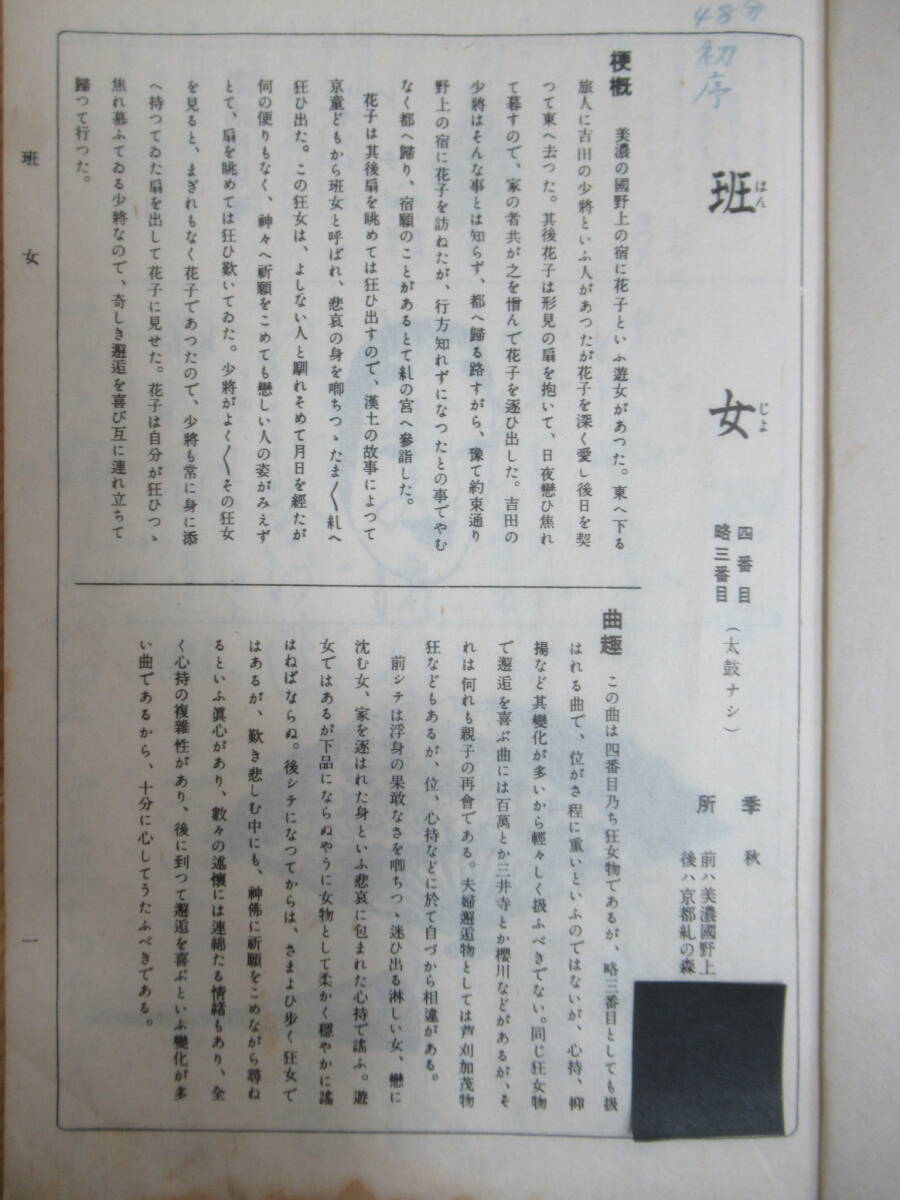 48分
初序
班女
はんじよ
四番目
略三番目
（太鼓ナシ）
季 秋
所 前ハ美濃國野上
後ハ京都糺の森
梗概 美濃の國野上の宿に花子といふ遊女があつた。東へ下る
旅人に吉田の少將といふ人があつたが花子を深く愛し後日を契
つて東へ去つた。其後花子は形見の扇を抱いて、日夜戀ひ焦れ
て暮すので、家の者共が之を憎んで花子を逐ひ出した。吉田の
少將はそんな事とは知らず、都へ歸る路すがら、豫て約束通り
野上の宿に花子を訪ねたが、行方知れずになつたとの事でやむ
なく都へ歸り、宿願のことがあるとて糺の宮へ參詣した。
花子は其後扇を眺めては狂ひ出すので、漢土の故事によつて
京童どもから班女と呼ばれ、悲哀の身を喞ちつゝたま〱糺へ
狂ひ出た。この狂女は、よしない人と馴れそめて月日を經たが
何の便りもなく、神々へ祈願をこめても戀しい人の姿がみえず
とて、扇を眺めては狂ひ歎いてゐた。少將がよく〱その狂女
を見ると、まぎれもなく花子であつたので、少將も常に身に添
へ持つてゐた扇を出して花子に見せた。花子は自分が狂ひつゝ
焦れ慕ふてゐる少將なので、奇しき邂逅を喜び互に連れ立ちて
歸つて行つた。
曲趣 この曲は四番目乃ち狂女物であるが、略三番目としても扱
はれる曲で、位がさ程に重いといふのではないが、心持、抑
揚など其變化が多いから輕々しく扱ふべきでない。同じ狂女物
で邂逅を喜ぶ曲には百萬とか三井寺とか櫻川などがあるが、そ
れは何れも親子の再會である。夫婦邂逅物としては芦刈加茂物
狂などもあるが、位、心持などに於て自づから相違がある。
前シテは浮身の果敢なさを喞ちつゝ迷ひ出る淋しい女、戀に
沈む女、家を逐はれた身といふ悲哀に包まれた心持で謠ふ。遊
女ではあるが下品にならぬやうに女物として柔かく穩やかに謠
はねばならぬ。後シテになつてからは、さまよひ步く狂女で
はあるが、歎き悲しむ中にも、神佛に祈願をこめながら尋ね
るといふ眞心があり、數々の述懷には連綿たる情緒もあり、全
く心持の複雜性があり、後に到つて邂逅を喜ぶといふ變化が多
い曲であるから、十分に心してうたふべきである。
班女
一